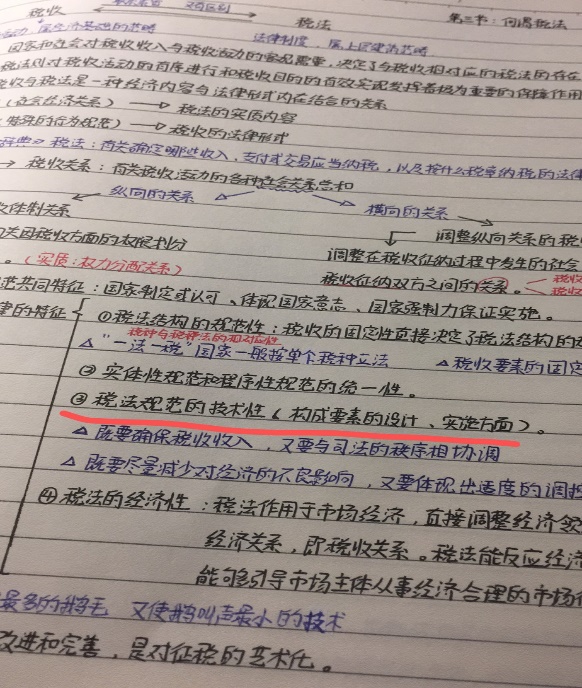 税收 税法 第二节:何谓税法
属经济基础的范畴 法律制度、属上层建筑范畴
国家和社会对税收收入与税收活动的客观需要,决定了与税收相对应的税法的存在
税法则对税收活动的有序进行和税收目的的有效实现发挥着极为重要的保障作用
收与税法是一种经济内容与法律形式内在结合的关系
(社会经济关系) → 税法的实质内容
(特殊的行为规范) → 税收的法律形式
辞典》税法:有关确定哪些收入,支付或交易应当纳税,以及按什么税率纳税的法律
→ 税收关系:有关税收活动的各种社会关系总和
纵向的关系 横向的关系
收体制关系 调整纵向关系的税
关因税收方面的权限划分 调整在税收征纳过程中发生的社会
。(实质:权力分配关系) 税收征纳双方之间的关系。 税收
税收
共同特征:国家制定或认可、体现国家意志、国家强制力保证实施。
律的特征 ①税法结构的规范性:税收的固定性直接决定了税法结构的
税种与税种法的相对应性
△“一法一税”国家一般按单个税种立法 △税收要素的固定
②实体性规范和程序性规范的统一性。
③税法规范的技术性(构成要素的设计、实施方面)。
△既要确保税收收入,又要与司法的秩序相协调
△既要尽量减少对经济的不良影响,又要体现出适度的调控
④税法的经济性:税法作用于市场经济,直接调整经济领
经济关系,即税收关系。税法能反应经济
能够引导市场主体从事经济合理的市场行
最多的鹅毛 又使鹅叫声最小的技术
改进和完善,是对征税的艺术化。